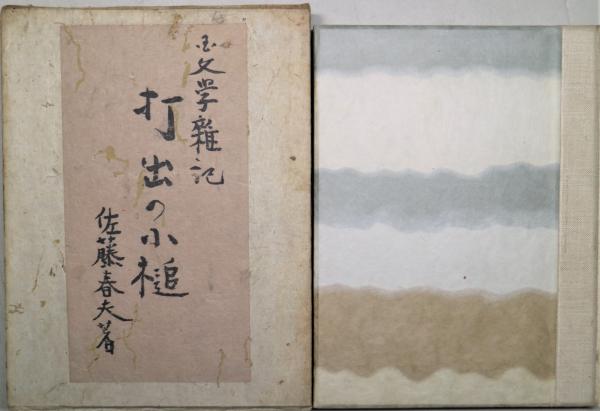 国文學雜記
打出の小槌
佐藤春夫著